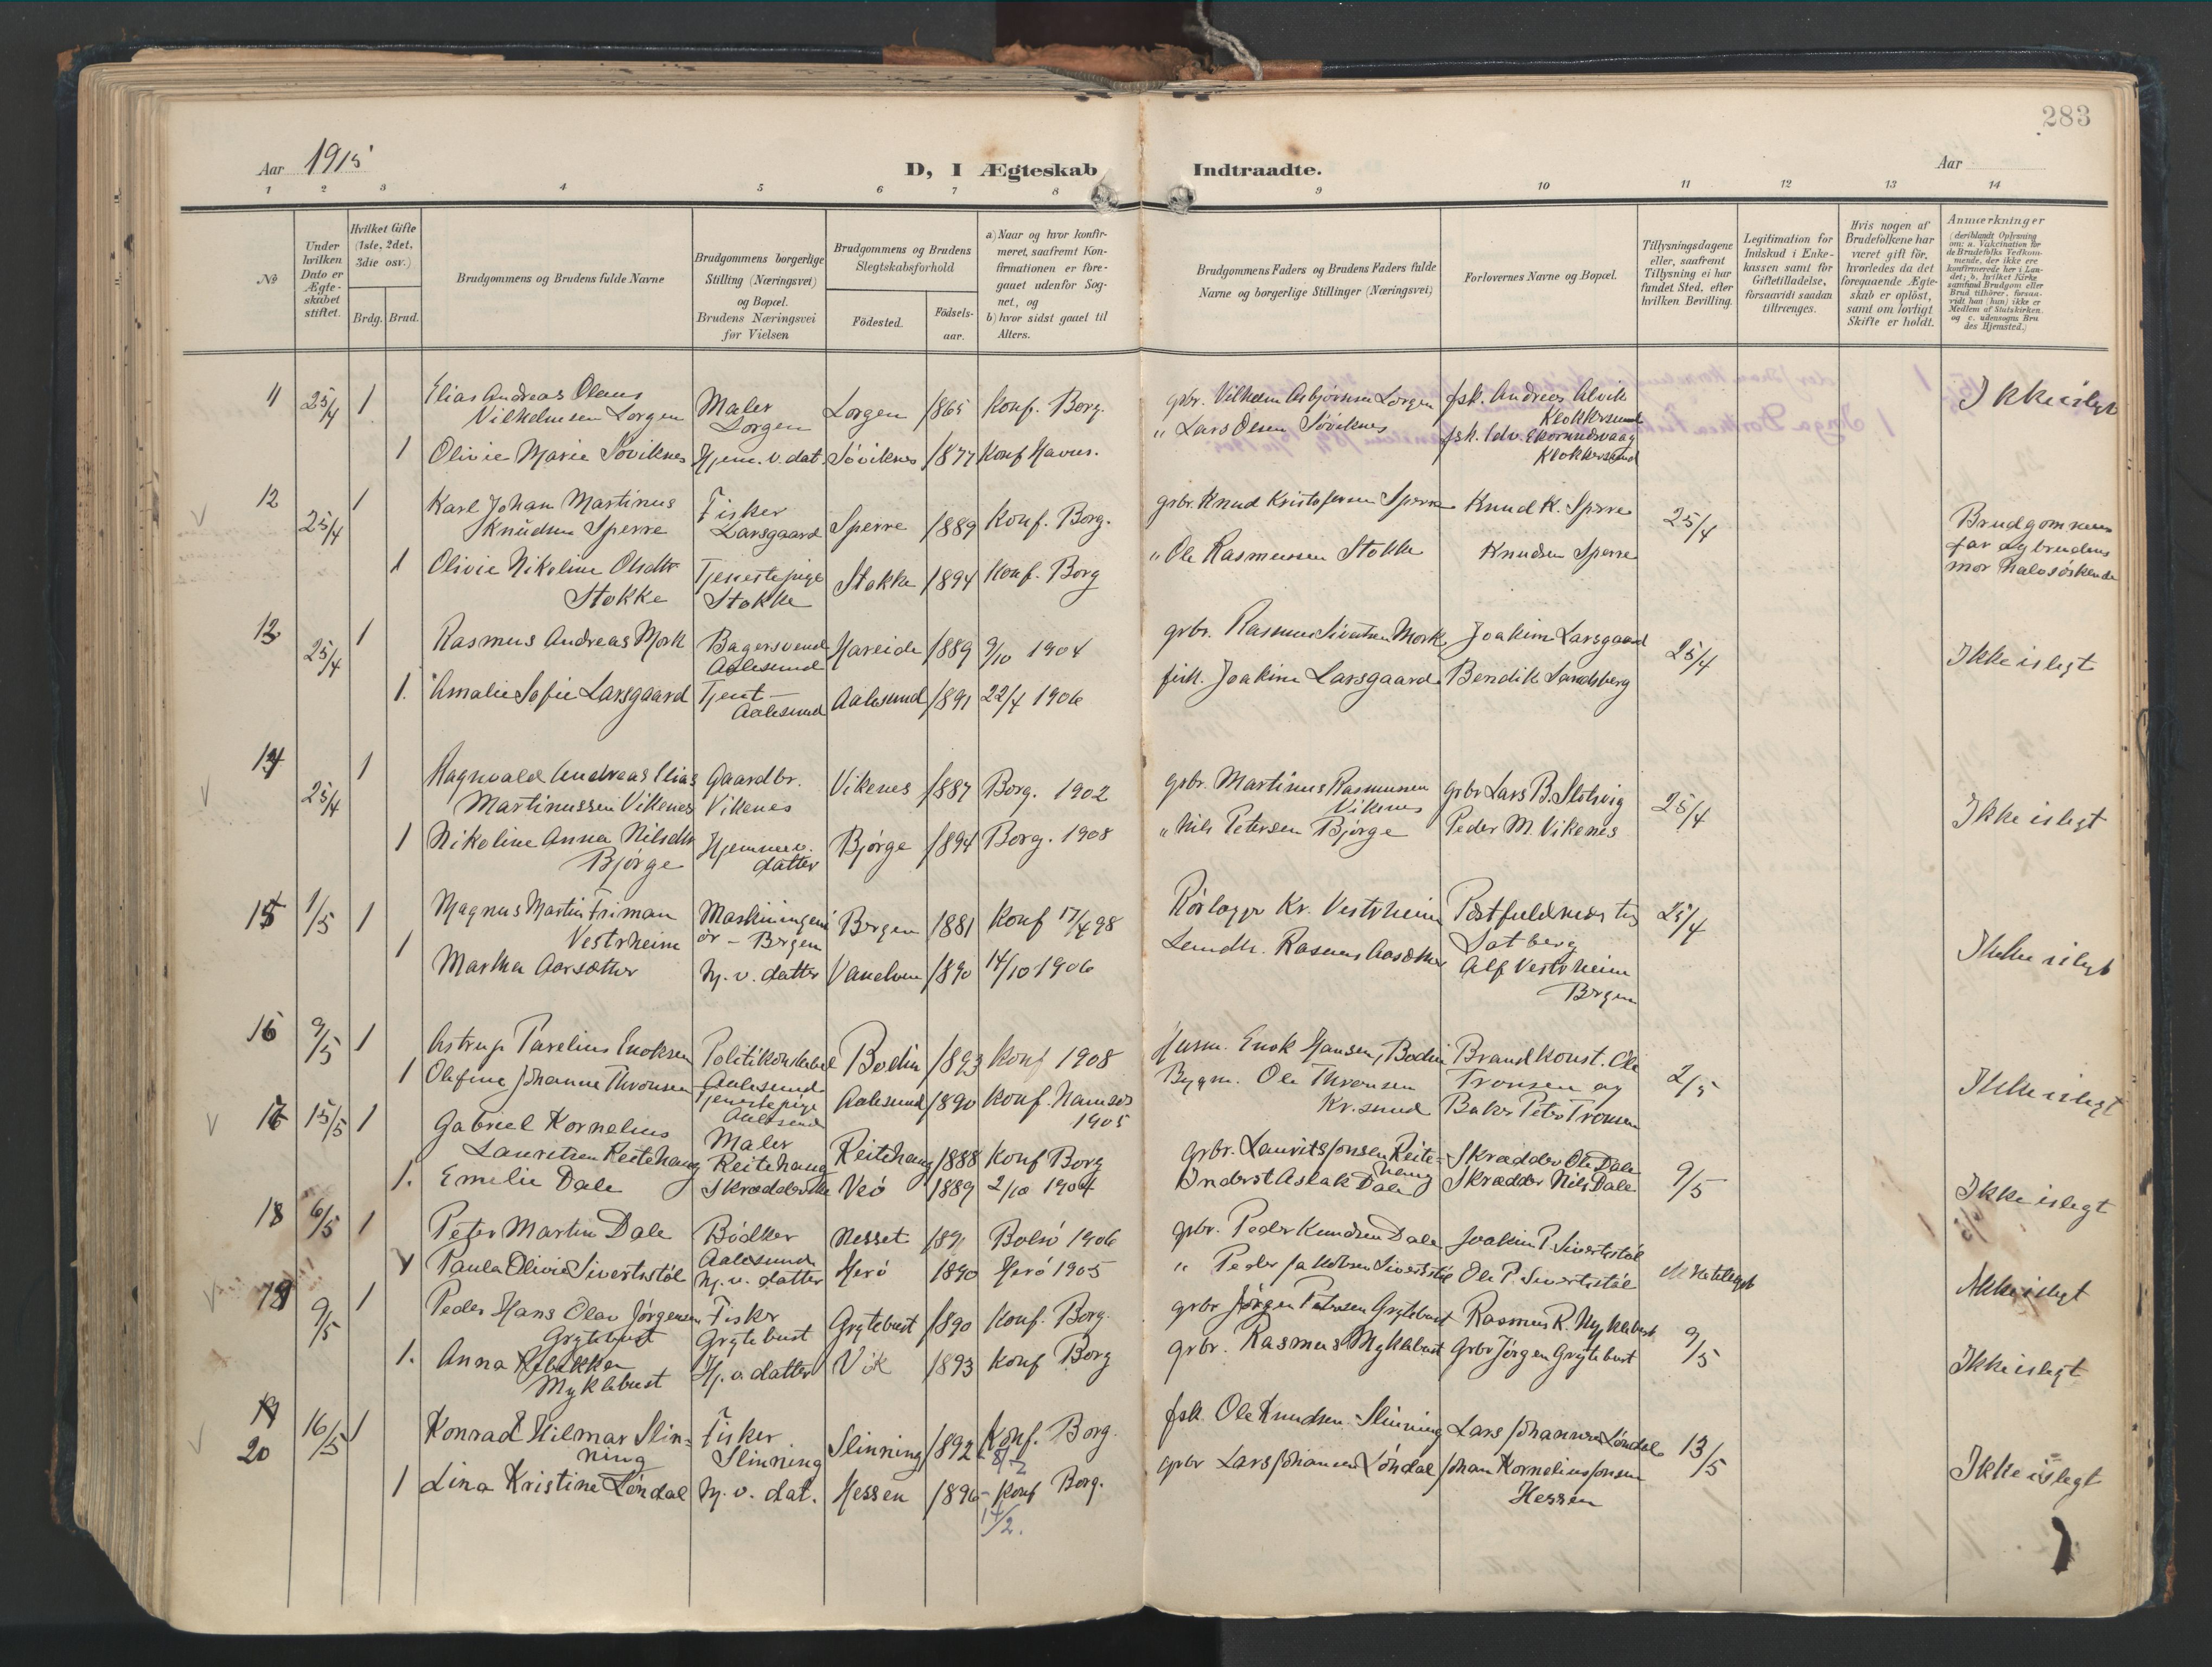 283
Aar 1915
D, I Ægteskab Indtraadte.
Aar
1 2 3 4 5 6 7 8 9 10 11 12 13 14
№
Under hvilken Dato er Ægteskabet stiftet.
Hvilket Gifte (1ste, 2det, 3die osv.)
Brdg. Brud.
Brudgommens og Brudens fulde Navne
Brudgommens borgerlige Stilling (Næringsvei) og Bopæl. Brudens Næringsvei før Vielsen
Brudgommens og Brudens Slegtskabsforhold
Fødested. Fødsels-aar.
a) Naar og hvor konfirmeret, saafremt Konfirmationen er foregaaet udenfor Sognet, og b) hvor sidst gaaet til Alters.
Brudgommens Faders og Brudens Faders fulde Navne og borgerlige Stillinger (Næringsvei)
Forlovernes Navne og Bopæl.
Tillysningsdagene eller, saafremt Tillysning ei har fundet Sted, efter hvilken Bevilling.
Legitimation for Indskud i Enkekassen samt for Giftetilladelse, forsaavidt saadan tiltrænges.
Hvis nogen af Brudefolkene har været gift før, hvorledes da det foregaaende Ægteskab er opløst, samt om lovligt Skifte er holdt.
Anmærkninger (deriblandt Oplysning om: a. Vakcination for de Brudefolks Vedkommende, der ikke ere konfirmerede her i Landet; b. hvilket Kirkesamfund Brudgom eller Brud tilhører, forsaavidt han (hun) ikke er Medlem af Statskirken. og c. udensogns Brudes Hjemsted.)
11 25/4 1 Elias Andreas Olaus Vilhelmsen Lorgen Maler Lorgen Lorgen 1865 Konf. Borg. gbr. Vilhelm Asbjørnsen Lorgen fsk. Andreas Alvik Klokkersund Ikke i slegt
1 Olivie Marie Søviknes Hjem. v. dat. Søviknes 1877 Konf Havns. " Lars Olsen Søviknes fsk. Edv. Ekornudsvaag Klokkersund
12 25/4 1 Karl Johan Martinus Knudsen Sperre Fisker Larsgaard Sperre 1889 Konf. Borg. grbr. Knud Kristofersen Sperre Knud K. Sperre 25/4 Brudgommens far og brudens mor halvsøskende
1 Olivie Nikoline Olsdtr Stokke Tjenestepige Stokke Stokke 1894 Konf. Borg " Ole Rasmussen Stokke Knudsen Sperre
13 25/4 1 Rasmus Andreas Mork Bagersvend Aalesund Hareide 1889 9/10 1904 grbr. Rasmus Sivertsen Mork Joakim Larsgaard 25/4 Ikke i slegt
1. Amalie Sofie Larsgaard Tjent - Aalesund Aalesund 1891 22/4 1906 fisk. Joakim Larsgaard Bendik Sandsberg
14 25/4 1 Ragnvald Andreas Elias Martinussen Vikenes Gaardbr. Vikenes Vikenes 1887 Borg. 1902 grbr. Martinus Rasmussen Vikenes grbr Lars B. Slotsvig 25/4 Ikke i slegt
1 Nikoline Anna Nilsdtr Bjørge Hjemmev. datter Bjørge 1894 Borg. 1908 " Nils Petersen Bjørge Peder M. Vikenes
15 1/5 1 Magnus Martin Friman Vestrheim Maskiningeniør - Bergen Bergen 1881 Konf 17/4 98 Rørlægger Kr. Vestrheim 25/4 Ikke i slegt
1 Martha Aarsæther Hj. v. datter Vanelven 1890 14/10 1906 Rasmus Aarsæther Alf Vestrheim Bergen
16 9/5 1 Astrup Parelius Enoksen Politikonstabel Aalesund Bodin 1893 Konf 1908 Husm. Enok Hansen, Bodin Brandkonst. Ole Tronsen og 2/5 Ikke i slegt
1 Olefine Johanne Thronsen Tjenestepige Aalesund Aalesund 1890 Konf. Namsos 1905 Bygm. Ole Thronsen Kr. sund Baker Peter Tronsen
17 15/5 1 Gabriel Kornelius Lauritzen Reitehaug Maler Reitehaug Reitehaug 1888 Konf Borg grbr. Laurits Jonsen Reitehaug Skrædder Ole Dale 9/5 Ikke i slegt
1. Emelie Dale Skrædderske Veø 1889 2/10 1904 Inderst Aslak Dale Skrædder Nils Dale
18 6/5 1 Peter Martin Dale Bødker Aalesund Nesset 1891 Bolsø 1906 gbr. Peder Knudsen Dale Joakim P. Sivertstøl
1 Paula Olivie Sivertsstøl Hj. v. datter Herø 1890 Herø 1905 " Peder Jakobsen Sivertstøl Ole P. Sivertstøl Ikke i slegt
19 9/5 1 Peder Hans Olav Jørgensen Grytebust Fisker Grytebust Grytebust 1890 Konf. Borg. grbr Jørgen Petersen Grytebust Rasmus R. Myklebust 9/5 Ikke i slegt
1. Anna Rebekka Myklebust Hj. v. datter Vik 1893 Konf Borg grbr. Rasmus Myklebust Grbr Jørgen Grytebust
20 16/5 1 Konrad Hilmar Slinning Fisker Slinning Slinning 1892 Konf. Borg. 8/2 fsk. Ole Knudsen Slinning Lars Johannsen Løndal 13/5 Ikke i slegt
1 Lina Kristine Løndal Hj. v. dat. Hessen 1896 Konf Borg. 14/2. grbr Lars Johansen Løndal Johan Kornelius Jonsen Hessen